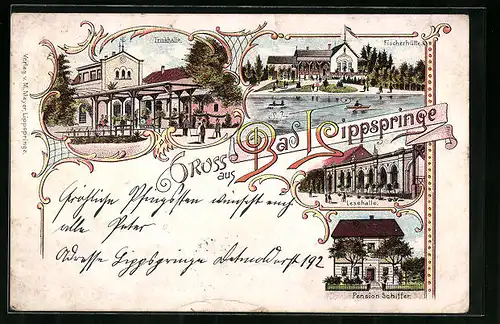 Trinkhalle.
Fischerhütte.
Verlag v. M. Meyer, Lippspringe.
Gruss aus
Bad Lippspringe
Lesehalle.
Fröhliche Pfingsten wünscht euch
alle Peter
Adresse Lippspringe Detmolderst 192
Pension Schiffer.